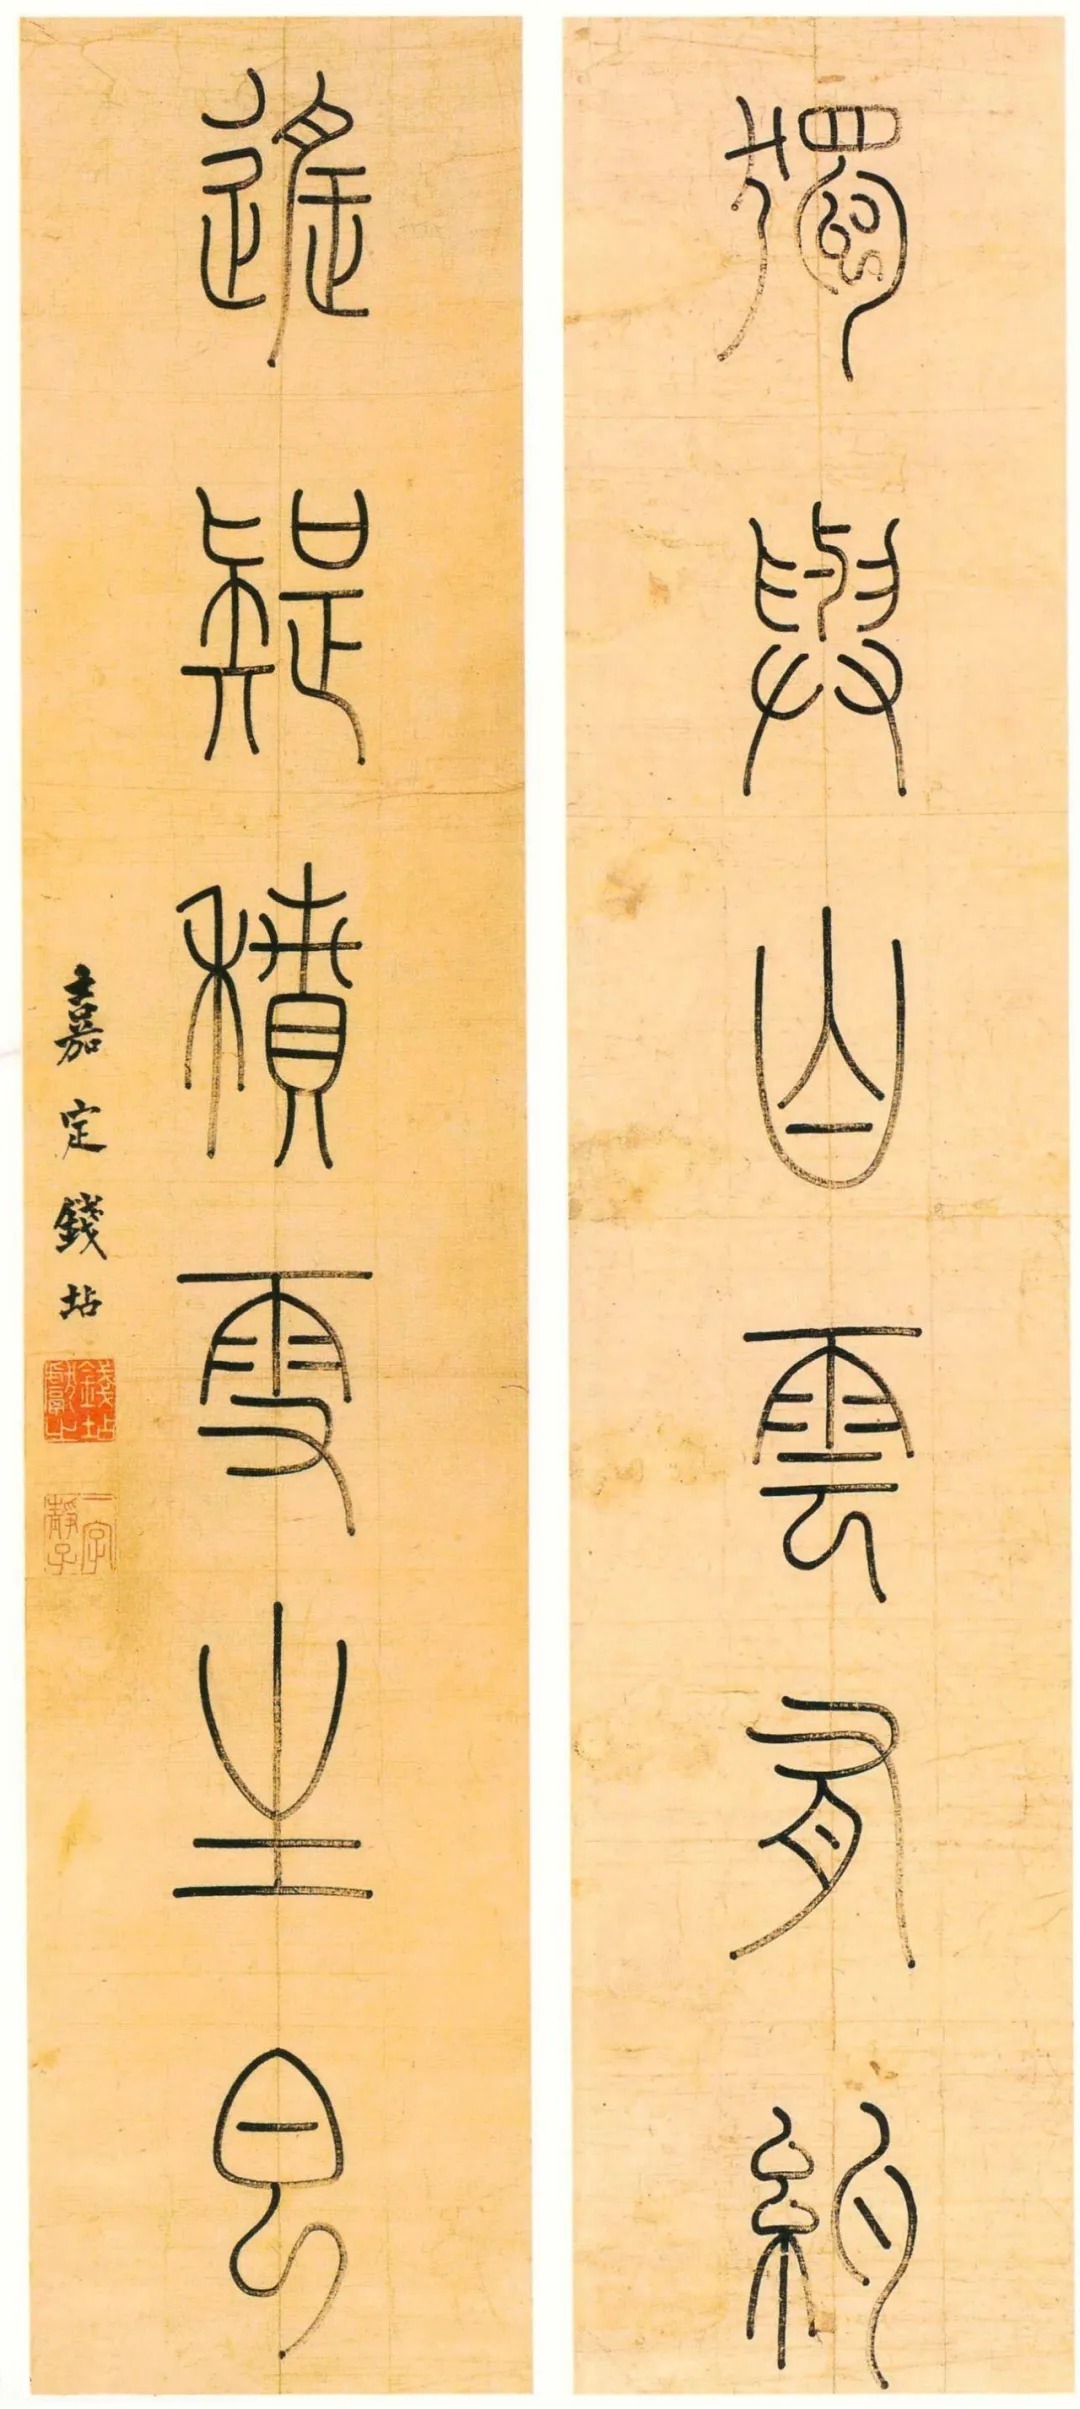 獨與山雲有約
遙積雪生
嘉定錢坫
錢坫獻之
一字